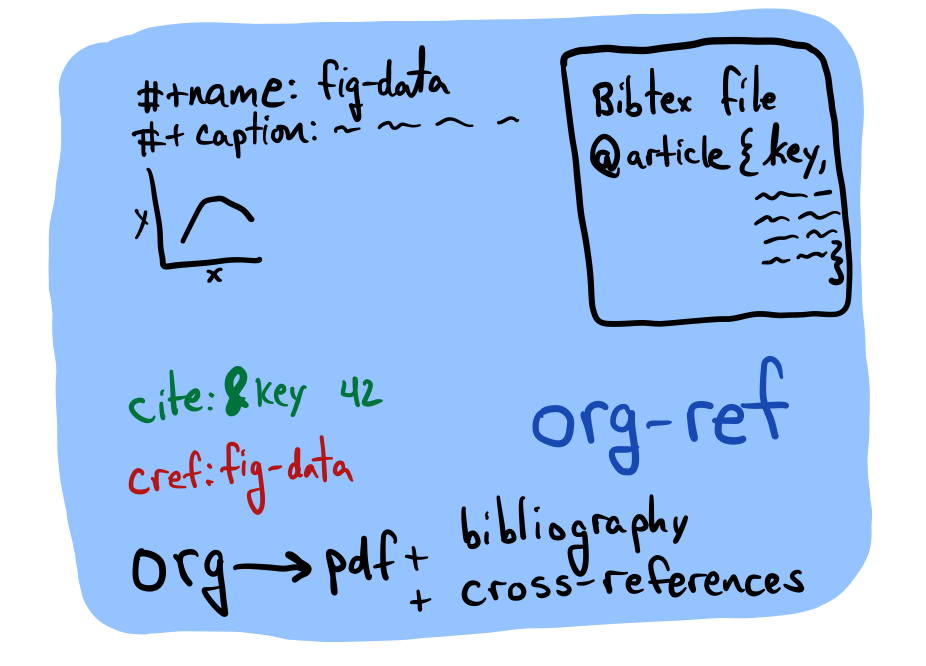 #+name: fig-data
#+ caption:
y
x
Bibtex file
@article{key,
}
cite:&key 42
cref:fig-data
org-ref
org → pdf + bibliography
+ cross-references